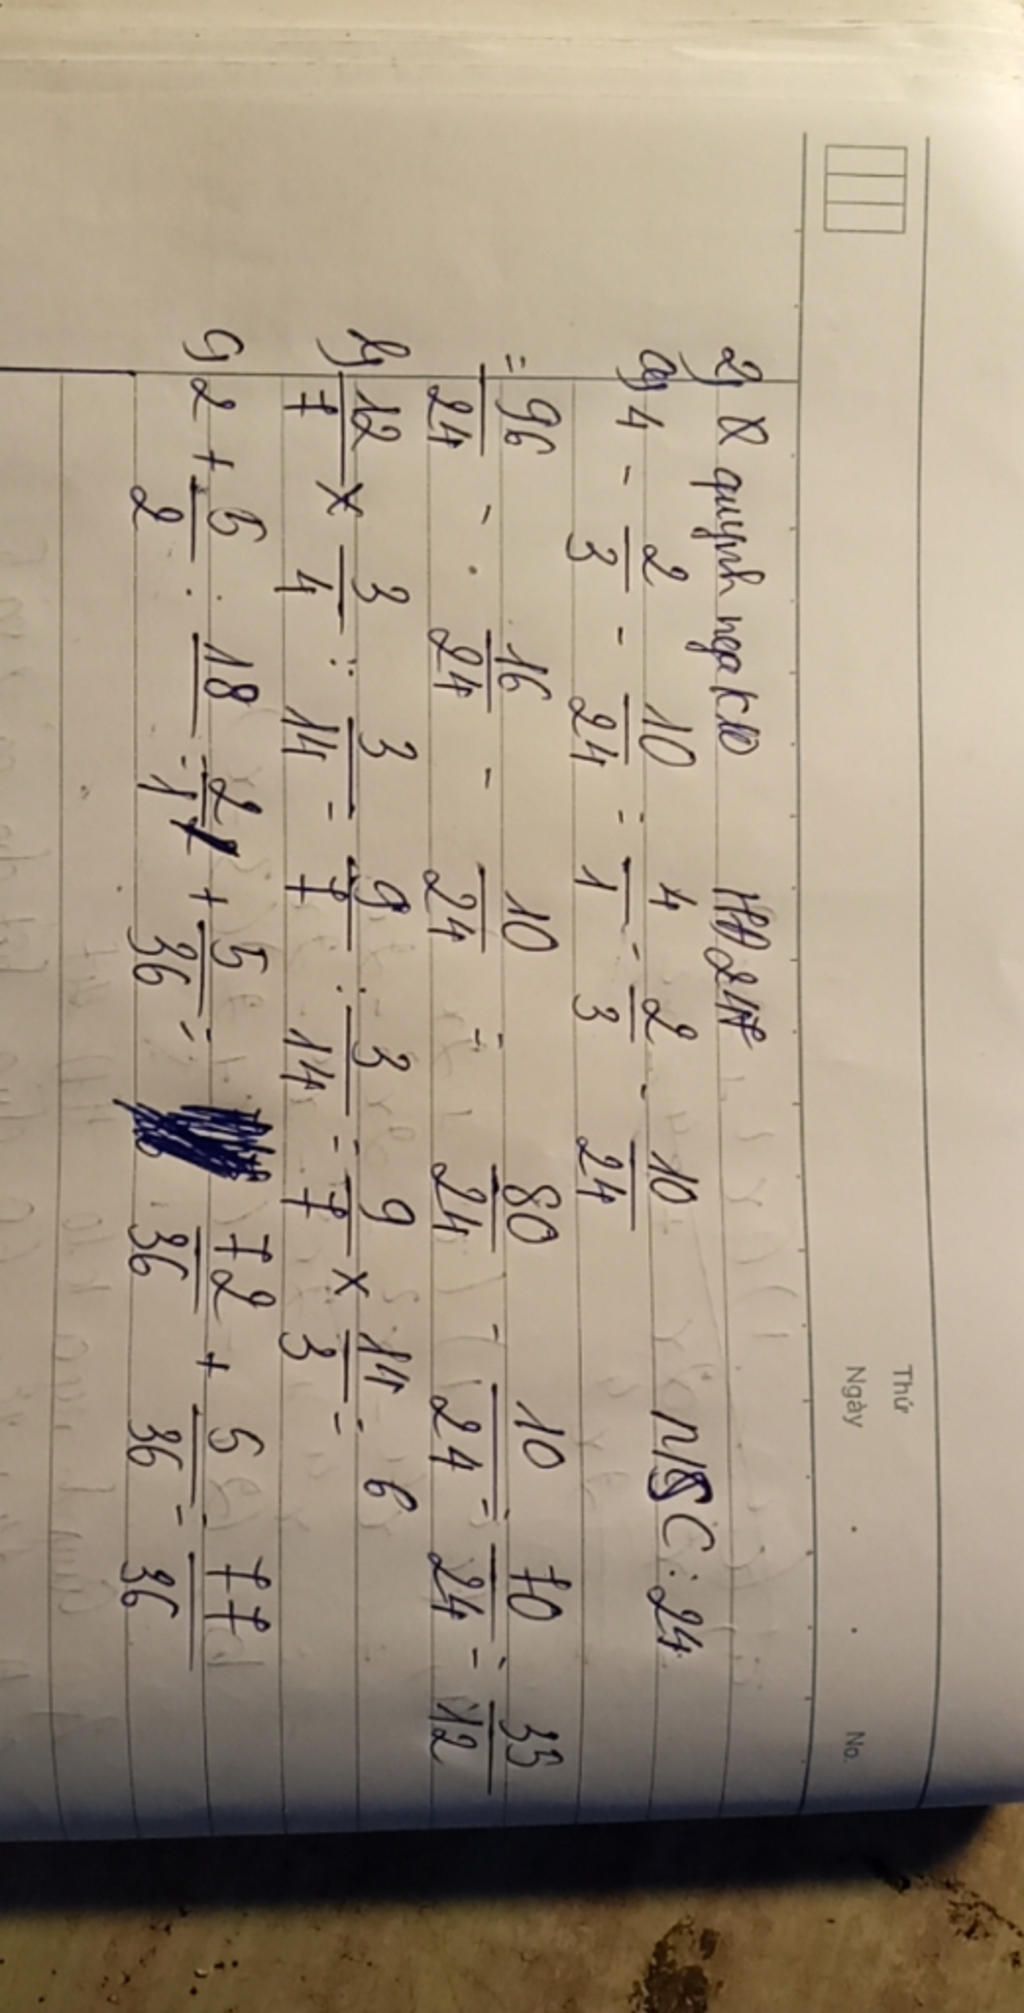 Thứ
Ngày . . No.
2) Q quynh nga K10 HA24A
a) 4 - 2/3 - 10/24 = 4/1 - 2/3 - 10/24 MSC: 24
= 96/24 - 16/24 - 10/24 = 80/24 - 10/24 = 70/24 = 35/12
b) 12/7 × 3/4 : 3/14 = 9/7 : 3/14 = 9/7 × 14/3 = 6
c) 2 + 5/2 : 18 = 2/1 + 5/36 = 72/36 + 5/36 = 77/36